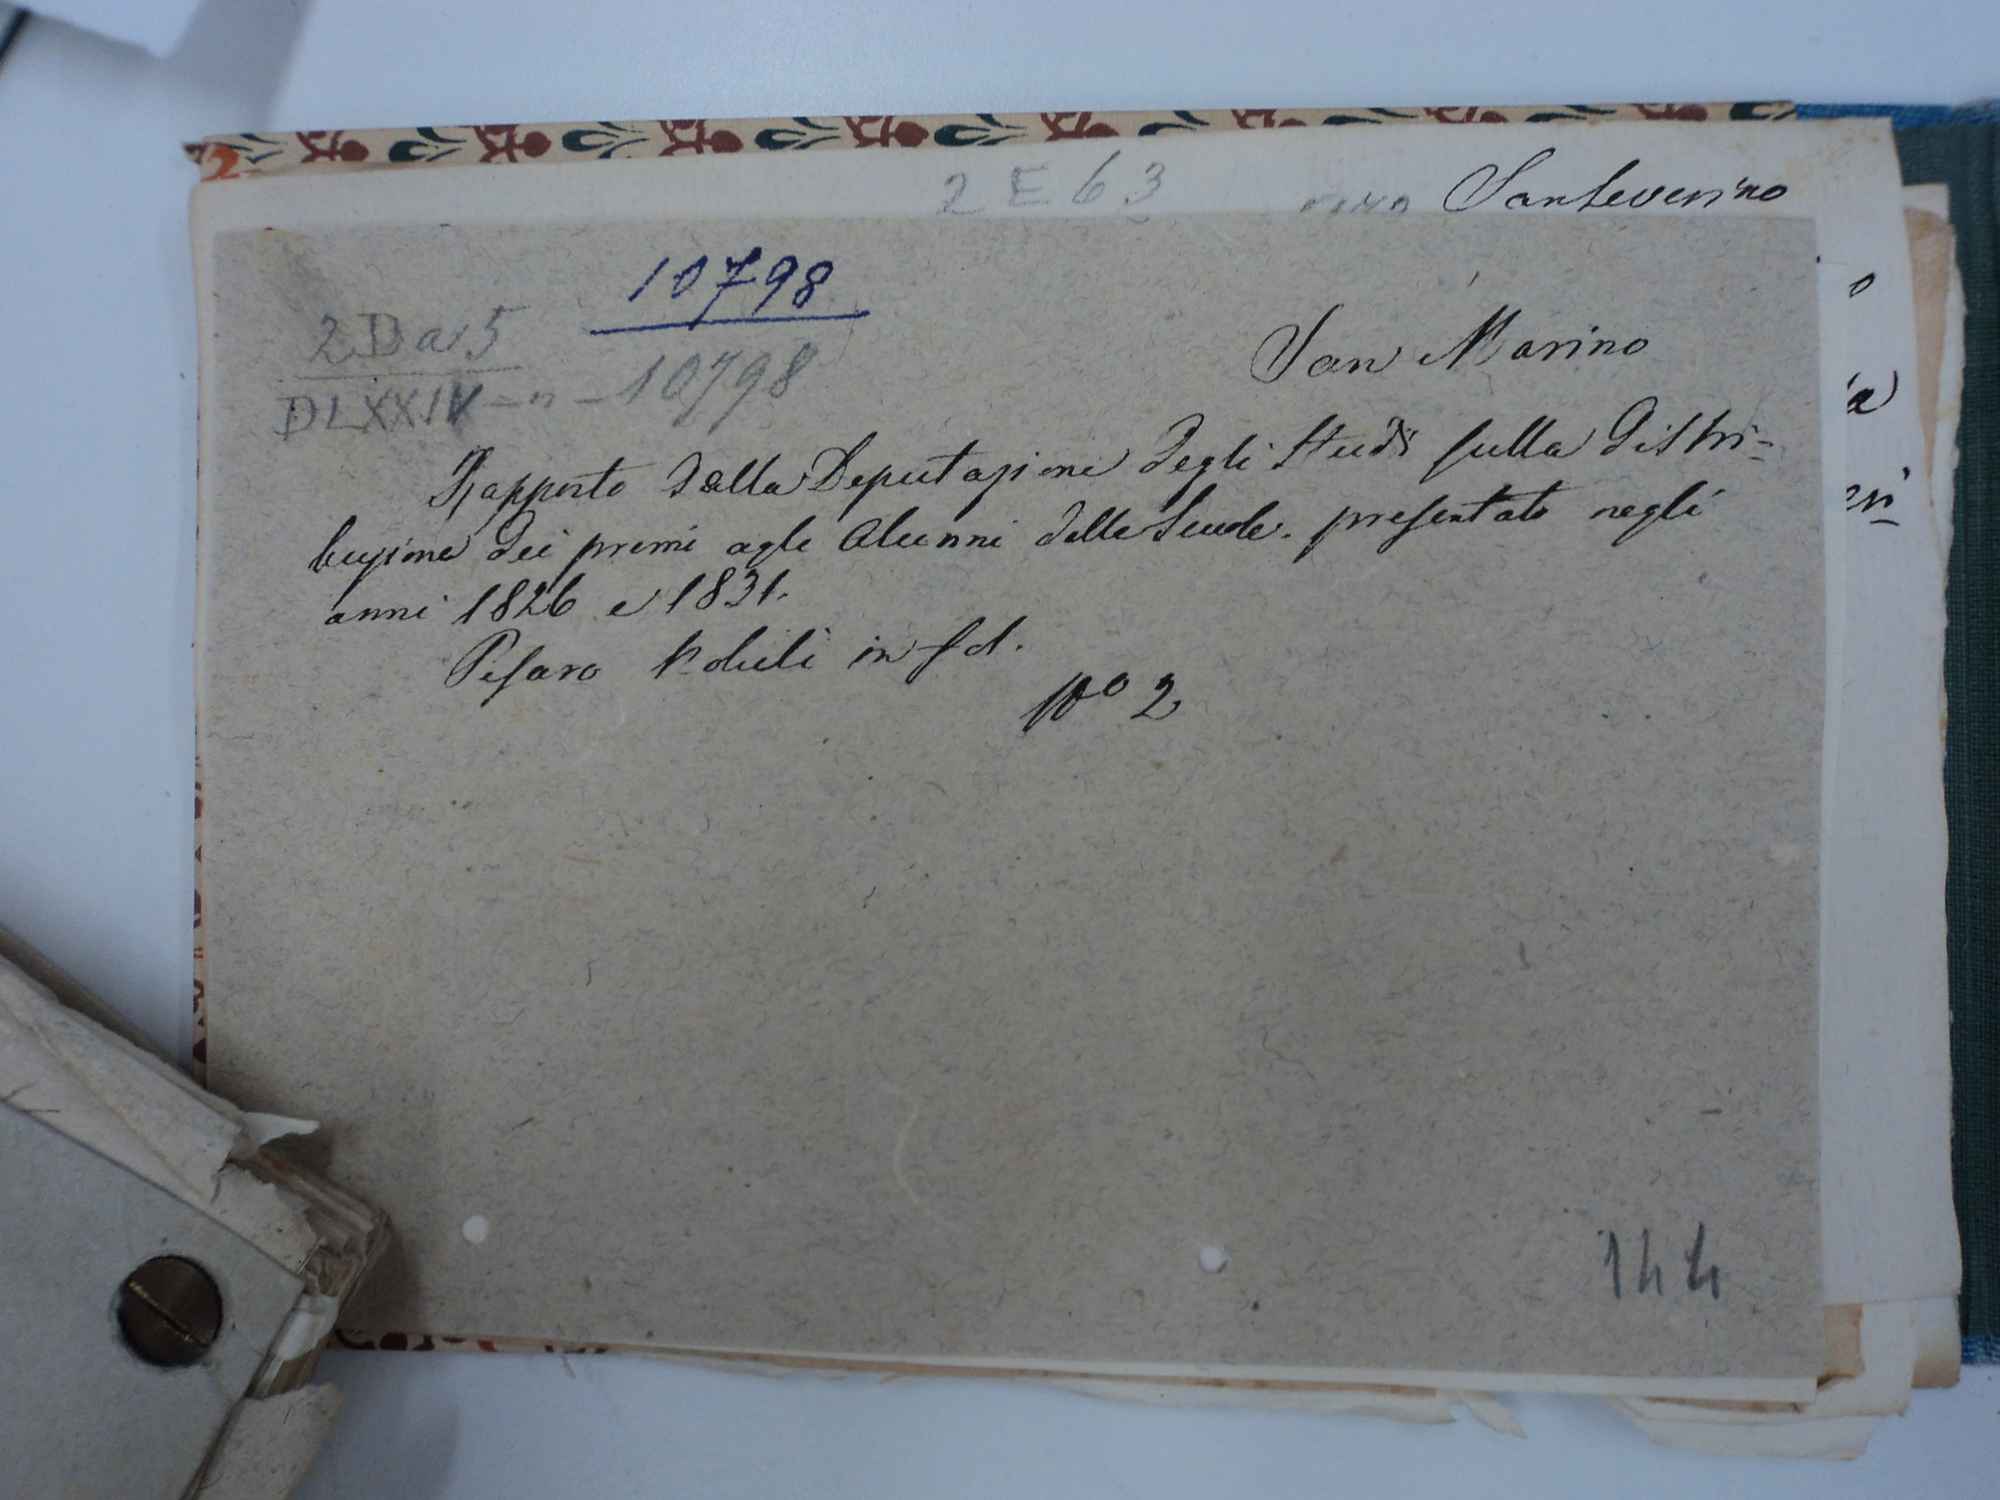 2
2 E 63
Sanseverino
10798
2 D a 5
San Marino
DLXXIV - n - 10798
Rapporto della Deputazione degli Studi sulla distri-
buzione dei premi agli Alunni delle Scuole. presentato negli
anni 1826 e 1831.
Pesaro Nobili in fol.
No 2
144